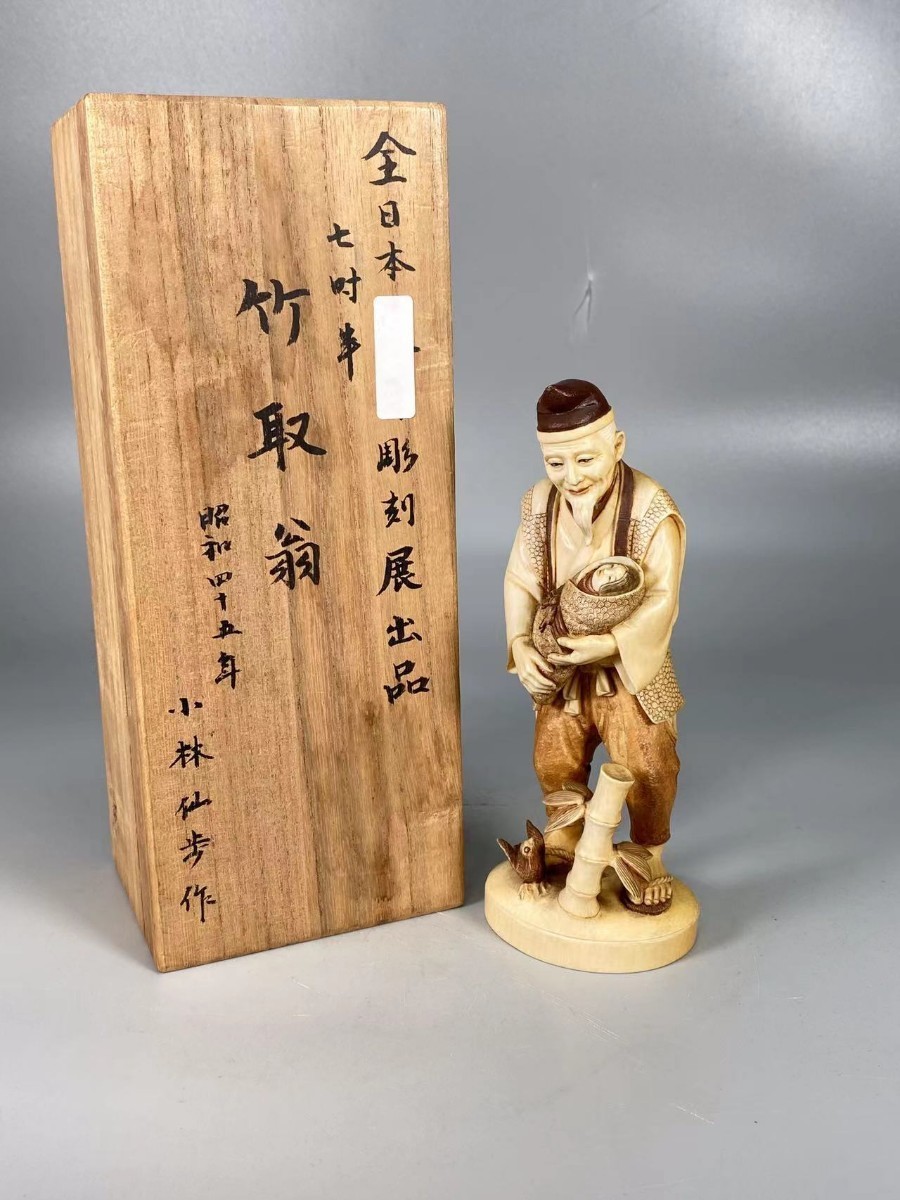 全日本
彫刻展出品
七吋半
竹取翁
昭和四十五年
小林仙步作